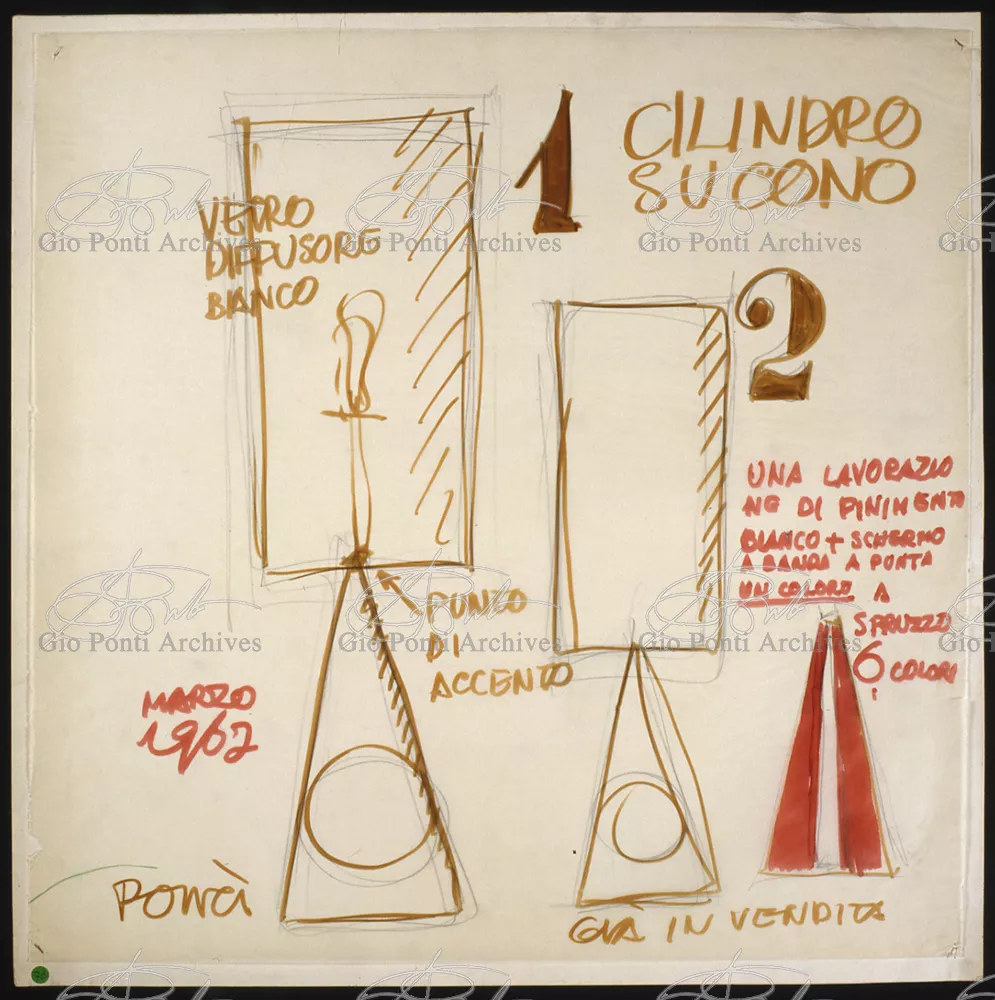 1
CILINDRO
SU CONO
VETRO
DIFFUSORE
BIANCO
2
UNA LAVORAZIO
NE DI FINIMENTO
BIANCO + SCHERMO
A BANDA A PONTA
UN COLORE A
SPRUZZO
6 COLORI
PUNTO
DI
ACCENTO
MARZO
1962
PONTI
GIÀ IN VENDITA
Gio Ponti Archives
Gio Ponti Archives
Gio Ponti Archives
Gio Ponti Archives
Gio Ponti Archives
Gio Ponti Archives